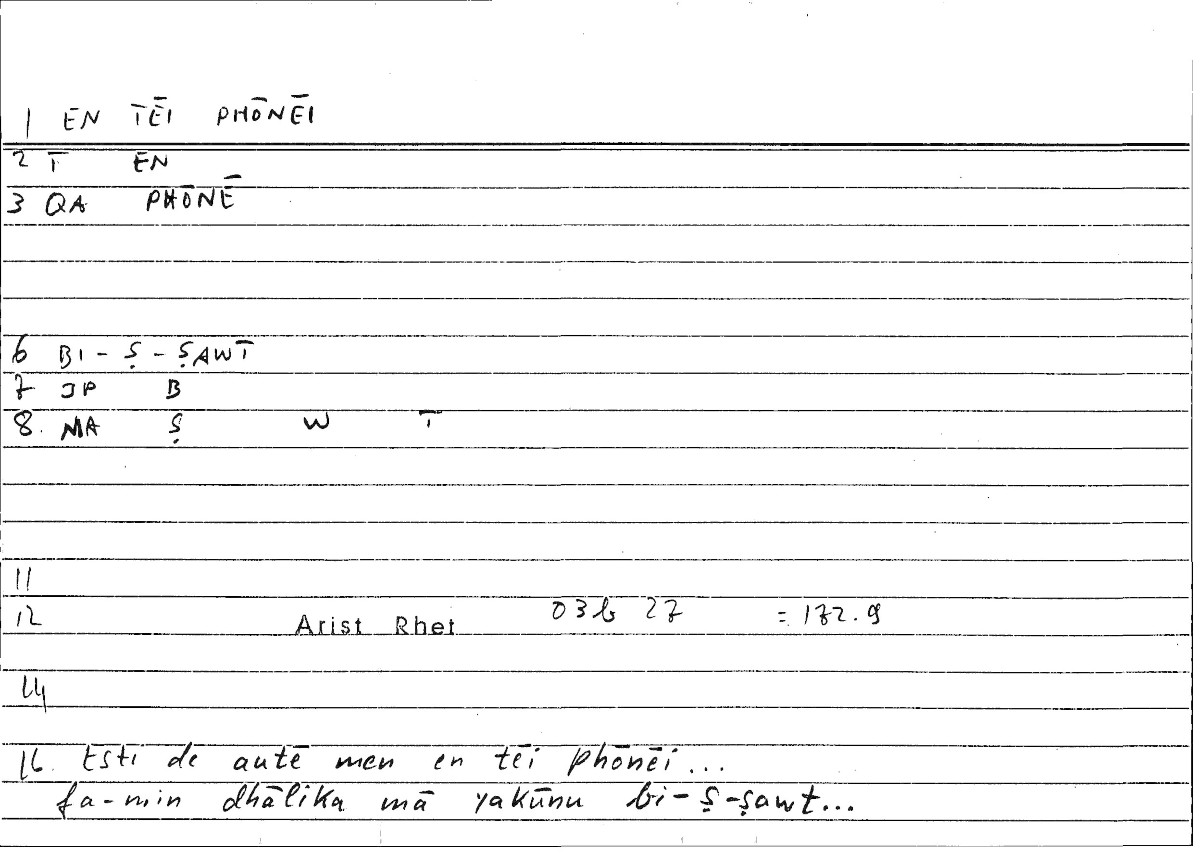 1 EN TĒI PHŌNĒI
2 T EN
3 QA PHŌNĒ
6 BI-Ṣ-ṢAWT
7 JP B
8. MA Ṣ W T
11
12 Arist Rhet 03b 27 = 172.9
14
16. Esti de autē men en tēi phōnēi...
fa-min dhālika mā yakūnu bi-ṣ-ṣawt...